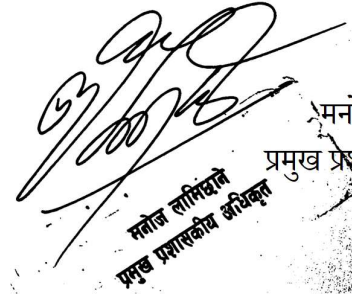 मनो
प्रमुख प्रश
मनोज लामिछाने
प्रमुख प्रशासकीय अधिकृत